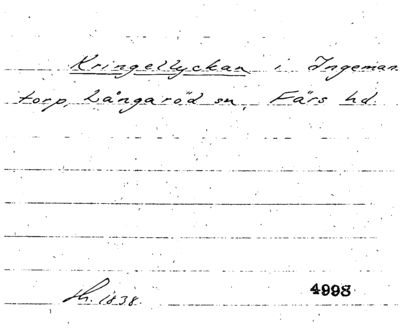 Kringellyckan i Ingeman
torp, Långaröd sn, Färs hd.
Hr. 1838.
4998